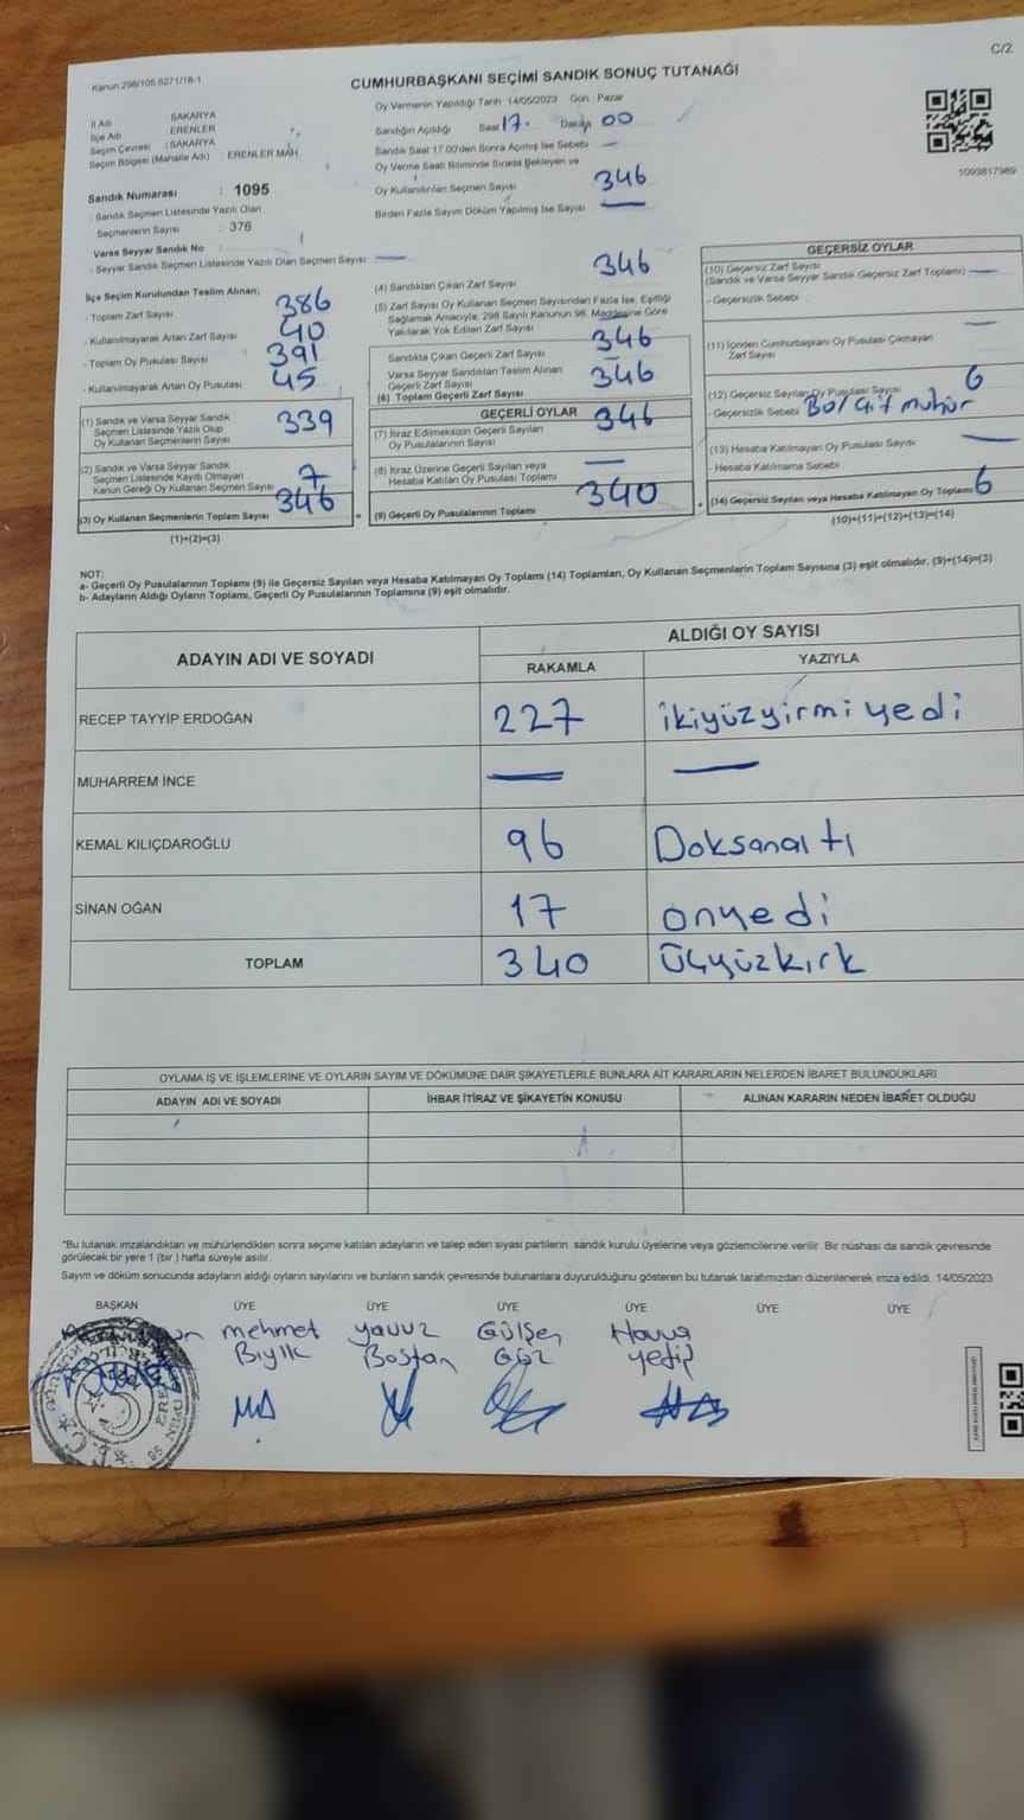 C/2
Kanun 298/105 6271/18-1
CUMHURBAŞKANI SEÇİMİ SANDIK SONUÇ TUTANAĞI
Oy Vermenin Yapıldığı Tarih 14/05/2023 Gün: Pazar
İl Adı SAKARYA
İlçe Adı ERENLER
Seçim Çevresi : SAKARYA
Seçim Bölgesi (Mahalle Adı) ERENLER MAH.
Sandığın Açıldığı Saat 17. Dakika 00
Sandık Saat 17.00'den Sonra Açılmış İse Sebebi —
Oy Verme Saati Bitiminde Sırada Bekleyen ve
Oy Kullandırılan Seçmen Sayısı 346
Birden Fazla Sayım Döküm Yapılmış İse Sayısı —
1093817989
Sandık Numarası : 1095
- Sandık Seçmen Listesinde Yazılı Olan
Seçmenlerin Sayısı : 376
Varsa Seyyar Sandık No
- Seyyar Sandık Seçmen Listesinde Yazılı Olan Seçmen Sayısı —
İlçe Seçim Kurulundan Teslim Alınan;
- Toplam Zarf Sayısı 386
- Kullanılmayarak Artan Zarf Sayısı 40
- Toplam Oy Pusulası Sayısı 391
- Kullanılmayarak Artan Oy Pusulası 45
(1) Sandık ve Varsa Seyyar Sandık
Seçmen Listesinde Yazılı Olup
Oy Kullanan Seçmenlerin Sayısı 339
(2) Sandık ve Varsa Seyyar Sandık
Seçmen Listesinde Kayıtlı Olmayan
Kanun Gereği Oy Kullanan Seçmen Sayısı 7
(3) Oy Kullanan Seçmenlerin Toplam Sayısı 346
(1)+(2)=(3)
(4) Sandıktan Çıkan Zarf Sayısı 346
(5) Zarf Sayısı Oy Kullanan Seçmen Sayısından Fazla İse, Eşitliği
Sağlamak Amacıyla, 298 Sayılı Kanunun 98. Maddesine Göre
Yakılarak Yok Edilen Zarf Sayısı
346
Sandıkta Çıkan Geçerli Zarf Sayısı —
Varsa Seyyar Sandıktan Teslim Alınan
Geçerli Zarf Sayısı 346
(6) Toplam Geçerli Zarf Sayısı
GEÇERLİ OYLAR
(7) İtiraz Edilmeksizin Geçerli Sayılan
Oy Pusulalarının Sayısı 346
(8) İtiraz Üzerine Geçerli Sayılan veya
Hesaba Katılan Oy Pusulası Toplamı —
(9) Geçerli Oy Pusulalarının Toplamı 340
GEÇERSİZ OYLAR
(10) Geçersiz Zarf Sayısı
(Sandık ve Varsa Seyyar Sandık Geçersiz Zarf Toplamı) —
- Geçersizlik Sebebi
(11) İçinden Cumhurbaşkanı Oy Pusulası Çıkmayan
Zarf Sayısı —
(12) Geçersiz Sayılan Oy Pusulası Sayısı 6
- Geçersizlik Sebebi Boş/Çift mühür
(13) Hesaba Katılmayan Oy Pusulası Sayısı —
- Hesaba Katılmama Sebebi
(14) Geçersiz Sayılan veya Hesaba Katılmayan Oy Toplamı 6
(10)+(11)+(12)+(13)=(14)
NOT:
a- Geçerli Oy Pusulalarının Toplamı (9) ile Geçersiz Sayılan veya Hesaba Katılmayan Oy Toplamı (14) Toplamları, Oy Kullanan Seçmenlerin Toplam Sayısına (3) eşit olmalıdır. (9)+(14)=(3)
b- Adayların Aldığı Oyların Toplamı, Geçerli Oy Pusulalarının Toplamına (9) eşit olmalıdır.
ADAYIN ADI VE SOYADI ALDIĞI OY SAYISI
RAKAMLA YAZIYLA
RECEP TAYYİP ERDOĞAN 227 ikiyüzyirmi yedi
MUHARREM İNCE — —
KEMAL KILIÇDAROĞLU 96 Doksanaltı
SİNAN OĞAN 17 onyedi
TOPLAM 340 Üçyüzkırk
OYLAMA İŞ VE İŞLEMLERİNE VE OYLARIN SAYIM VE DÖKÜMÜNE DAİR ŞİKAYETLERLE BUNLARA AİT KARARLARIN NELERDEN İBARET BULUNDUKLARI
ADAYIN ADI VE SOYADI İHBAR İTİRAZ VE ŞİKAYETİN KONUSU ALINAN KARARIN NEDEN İBARET OLDUĞU
*Bu tutanak imzalandıktan ve mühürlendikten sonra seçime katılan adayların ve talep eden siyasi partilerin sandık kurulu üyelerine veya gözlemcilerine verilir. Bir nüshası da sandık çevresinde
görülecek bir yere 1 (bir ) hafta süreyle asılır.
Sayım ve döküm sonucunda adayların aldığı oyların sayılarını ve bunların sandık çevresinde bulunanlara duyurulduğunu gösteren bu tutanak taratımızdan düzenlenerek imza edildi. 14/05/2023
BAŞKAN ÜYE ÜYE ÜYE ÜYE ÜYE ÜYE
mehmet yavuz Gülşen
Bıyık Bostan Göz